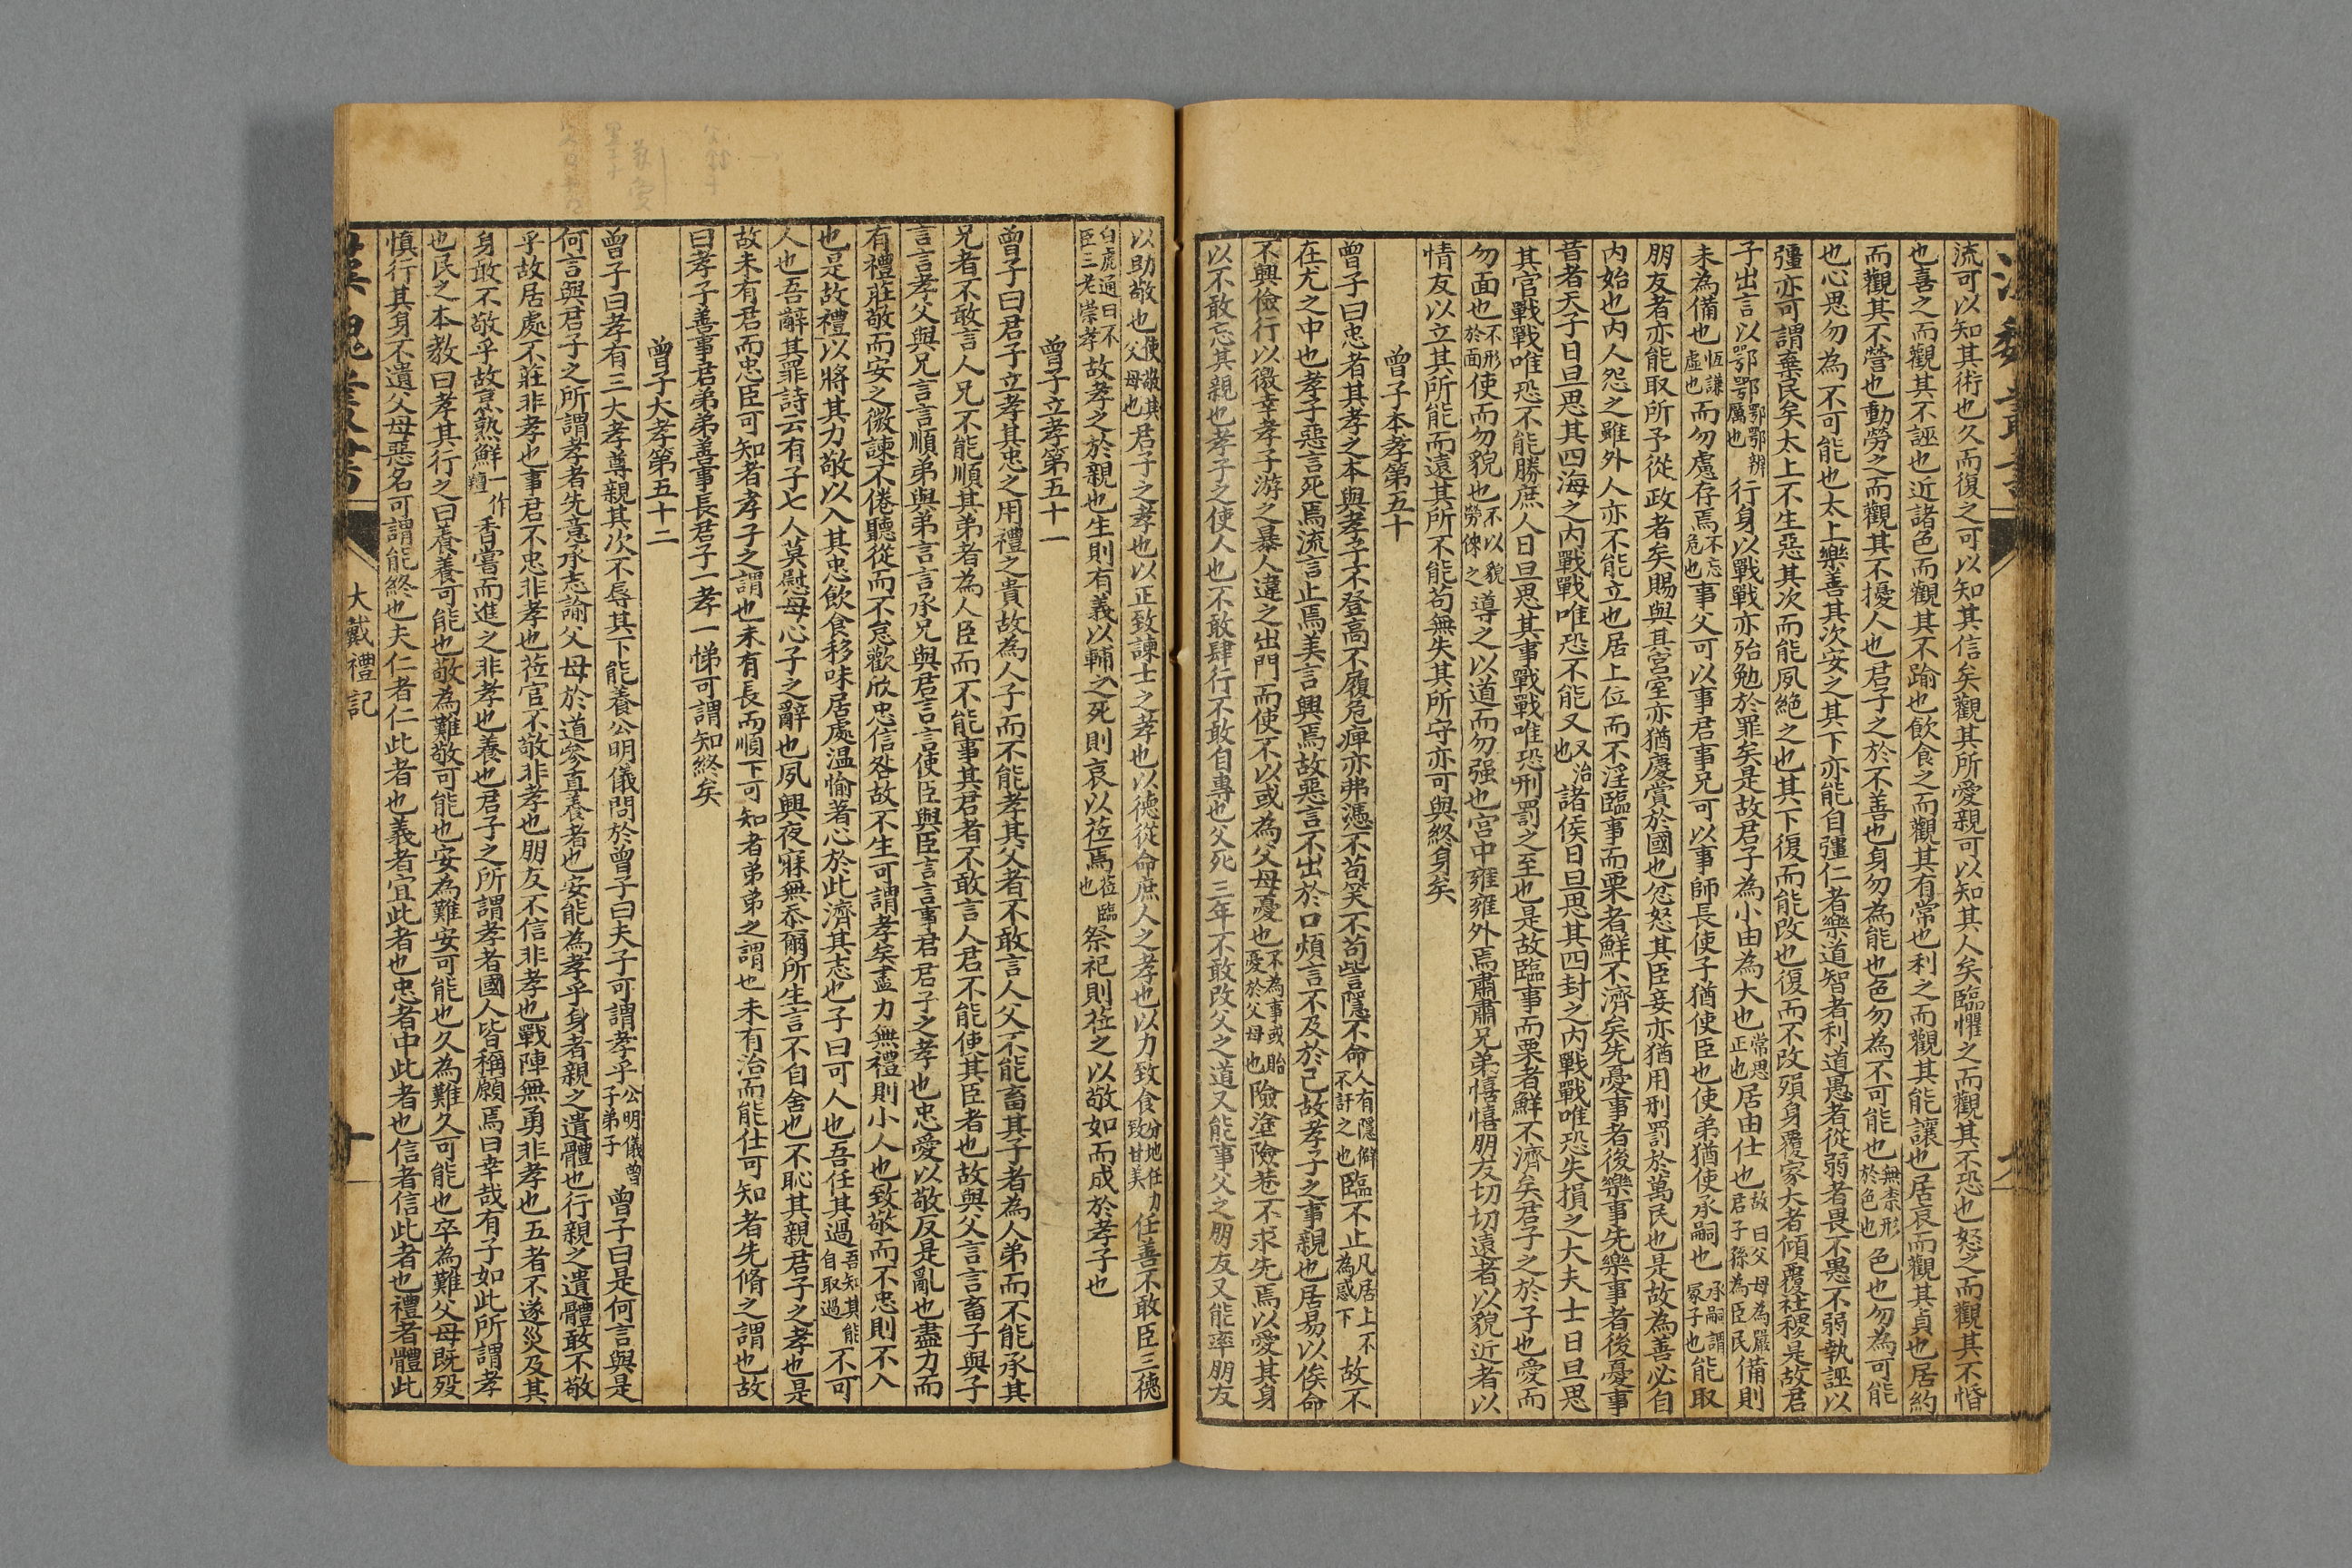 流可以知其術也久而復之可以知其信矣觀其所愛親可以知其人矣臨懼之而觀其不恐也怒之而觀其不惛
也喜之而觀其不誣也近諸色而觀其不踰也飲食之而觀其有常也利之而觀其能讓也居哀而觀其貞也居約
而觀其不營也動勞之而觀其不擾人也君子之於不善也身勿為能也色勿為不可能也無柰形於色也色也勿為可能
也心思勿為不可能也太上樂善其次安之其下亦能自彊仁者樂道智者利道愚者從弱者畏不愚不弱執誣以
彊亦可謂棄民矣太上不生惡其次而能夙絕之也其下復而能改也復而不改殞身覆家大者傾覆社稷是故君
子出言以鄂鄂鄂鄂辨厲也行身以戰戰亦殆勉於罪矣是故君子為小由為大也常思正也居由仕也故曰父母為嚴君子孫為臣民備則
未為備也恆謙虛也而勿慮存焉不忘危也事父可以事君事兄可以事師長使子猶使臣也使弟猶使承嗣也承嗣謂冢子也能取
朋友者亦能取所予從政者矣賜與其宮室亦猶慶賞於國也忿怒其臣妾亦猶用刑罰於萬民也是故為善必自
內始也內人怨之雖外人亦不能立也居上位而不淫臨事而栗者鮮不濟矣先憂事者後樂事先樂事者後憂事
昔者天子日旦思其四海之內戰戰唯恐不能乂乂治也諸侯日旦思其四封之內戰戰唯恐失損之大夫士日旦思
其官戰戰唯恐不能勝庶人日旦思其事戰戰唯恐刑罰之至也是故臨事而栗者鮮不濟矣君子之於子也愛而
勿面也不形於面使而勿貌也不以貌勞倈之導之以道而勿强也宮中雍雍外焉肅肅兄弟憘憘朋友切切遠者以貌近者以
情友以立其所能而遠其所不能苟無失其所守亦可與終身矣
曾子本孝第五十
曾子曰忠者其孝之本與孝子不登高不履危痺亦弗憑不苟笑不苟訾隱不命人有隱僻不訐之也臨不止凡居上不為惑下故不
在尤之中也孝子惡言死焉流言止焉美言興焉故惡言不出於口煩言不及於己故孝子之事親也居易以俟命
不興儉行以徼幸孝子游之暴人違之出門而使不以或為父母憂也不為事或貽憂於父母也險塗險巷不求先焉以愛其身
以不敢忘其親也孝子之使人也不敢肆行不敢自專也父死三年不敢改父之道又能事父之朋友又能率朋友
以助敬也使敬其父母也君子之孝也以正致諫士之孝也以德從命庶人之孝也以力致食分地任力致甘美任善不敢臣三德
白虎通曰不臣三老崇孝故孝之於親也生則有義以輔之死則哀以莅焉莅臨也祭祀則莅之以敬如而成於孝子也
曾子立孝第五十一
曾子曰君子立孝其忠之用禮之貴故為人子而不能孝其父者不敢言人父不能畜其子者為人弟而不能承其
兄者不敢言人兄不能順其弟者為人臣而不能事其君者不敢言人君不能使其臣者也故與父言言畜子與子
言言孝父與兄言言順弟與弟言言承兄與君言言使臣與臣言言事君君子之孝也忠愛以敬反是亂也盡力而
有禮莊敬而安之微諫不倦聽從而不怠歡欣忠信咎故不生可謂孝矣盡力無禮則小人也致敬而不忠則不入
也是故禮以將其力敬以入其忠飲食移味居處溫愉著心於此濟其志也子曰可人也吾任其過吾知其能自取過不可
人也吾辭其罪詩云有子七人莫慰母心子之辭也夙興夜寐無忝爾所生言不自舍也不恥其親君子之孝也是
故未有君而忠臣可知者孝子之謂也未有長而順下可知者弟弟之謂也未有治而能仕可知者先脩之謂也故
曰孝子善事君弟弟善事長君子一孝一悌可謂知終矣
曾子大孝第五十二
曾子曰孝有三大孝尊親其次不辱其下能養公明儀問於曾子曰夫子可謂孝乎公明儀曾子弟子曾子曰是何言與是
何言與君子之所謂孝者先意承志諭父母於道參直養者也安能為孝乎身者親之遺體也行親之遺體敢不敬
乎故居處不莊非孝也事君不忠非孝也莅官不敬非孝也朋友不信非孝也戰陣無勇非孝也五者不遂災及其
身敢不敬乎故烹熟鮮一作羶香嘗而進之非孝也養也君子之所謂孝者國人皆稱願焉曰幸哉有子如此所謂孝
也民之本教曰孝其行之曰養養可能也敬為難敬可能也安為難安可能也久為難久可能也卒為難父母既歿
慎行其身不遺父母惡名可謂能終也夫仁者仁此者也義者宜此者也忠者中此者也信者信此者也禮者體此
漢魏叢書
大戴禮記
十一